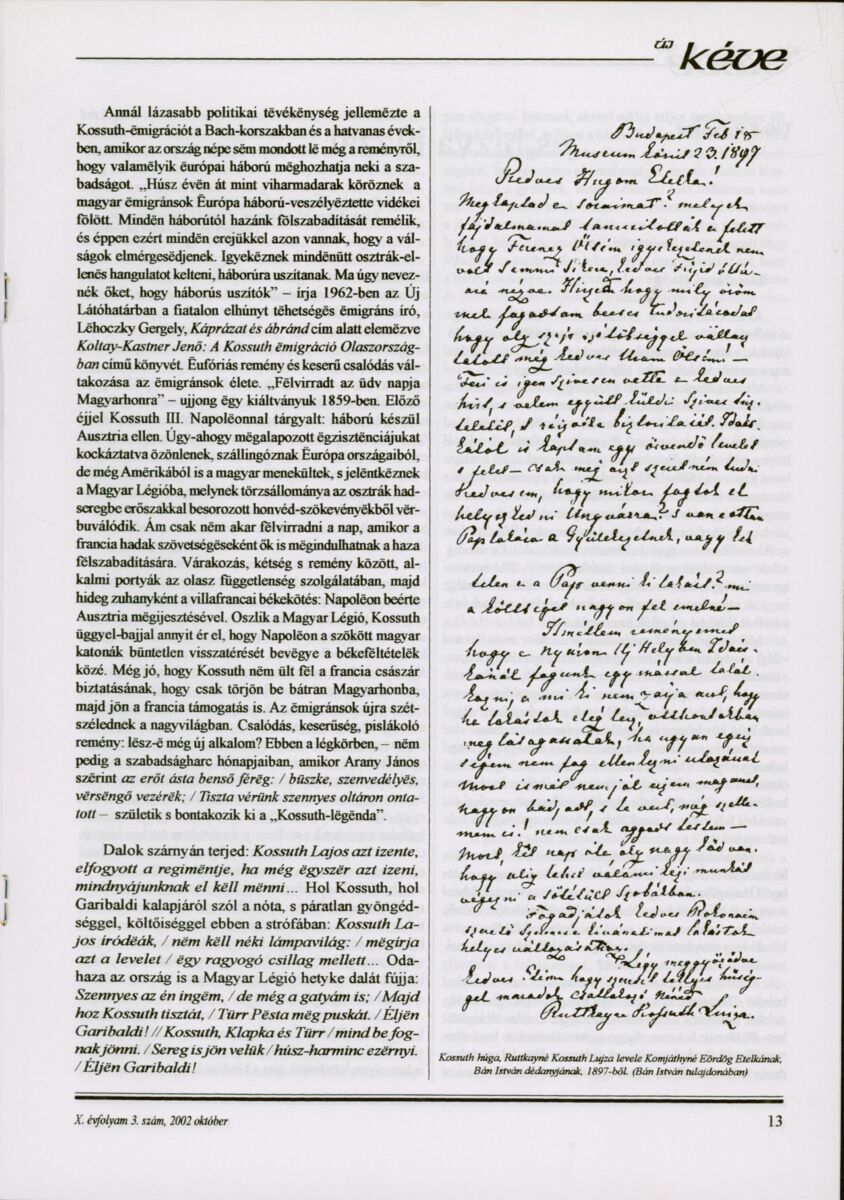 új kéve
Annál lázasabb politikai tëvékënység jellemëzte a
Kossuth-ëmigrációt a Bach-korszakban és a hatvanas évek-
ben, amikor az ország népe sëm mondott lë még a reményről,
hogy valamëlyik ëurópai háború mëghozhatja neki a sza-
badságot. „Húsz évën át mint viharmadarak köröznek a
magyar ëmigránsok Ëurópa háború-veszélyëztette vidékei
fölött. Mindën háborútól hazánk fölszabadítását remélik,
és éppen ezért mindën erejükkel azon vannak, hogy a vál-
ságok elmérgesëdjenek. Igyekëznek mindënütt osztrák-el-
lenës hangulatot kelteni, háborúra uszítanak. Ma úgy nevez-
nék őket, hogy háborús uszítók” – írja 1962-ben az Új
Látóhatárban a fiatalon elhúnyt tëhetségës ëmigráns író,
Lëhoczky Gergely, Káprázat és ábránd cím alatt elemëzve
Koltay-Kastner Jenő: A Kossuth ëmigráció Olaszország-
ban című könyvét. Ëufóriás remény és keserű csalódás vál-
takozása az ëmigránsok élete. „Fëlvirradt az üdv napja
Magyarhonra” – ujjong ëgy kiáltványuk 1859-ben. Előző
éjjel Kossuth III. Napolëonnal tárgyalt: háború készül
Ausztria ellen. Úgy-ahogy mëgalapozott ëgzisztënciájukat
kockáztatva özönlenek, szállingóznak Ëurópa országaiból,
de még Amërikából is a magyar menekültek, s jelëntkëznek
a Magyar Légióba, melynek törzsállománya az osztrák had-
seregbe erőszakkal besorozott honvéd-szökevényëkből vër-
buválódik. Ám csak nëm akar fëlvirradni a nap, amikor a
francia hadak szövetségëseként ők is mëgindulhatnak a haza
fëlszabadítására. Várakozás, kétség s remény között, al-
kalmi portyák az olasz függetlenség szolgálatában, majd
hideg zuhanyként a villafrancai békekötés: Napolëon beérte
Ausztria mëgijesztésével. Oszlik a Magyar Légió, Kossuth
üggyel-bajjal annyit ér el, hogy Napolëon a szökött magyar
katonák büntetlen visszatérését bevëgye a békeföltételëk
közé. Még jó, hogy Kossuth nëm ült fël a francia császár
biztatásának, hogy csak törjön be bátran Magyarhonba,
majd jön a francia támogatás is. Az ëmigránsok újra szét-
szélednek a nagyvilágban. Csalódás, keserűség, pislákoló
remény: lësz-ë még új alkalom? Ebben a légkörben, – nëm
pedig a szabadságharc hónapjaiban, amikor Arany János
szërint az erőt ásta benső férëg: / büszke, szenvedélyës,
vërsëngő vezérëk; / Tiszta vérünk szennyes oltáron onta-
tott – születik s bontakozik ki a „Kossuth-lëgënda”.
Dalok szárnyán terjed: Kossuth Lajos azt izente,
elfogyott a regimëntje, ha még ëgyszër azt izeni,
mindnyájunknak el këll mënni... Hol Kossuth, hol
Garibaldi kalapjáról szól a nóta, s páratlan gyöngéd-
séggel, költőiséggel ebben a strófában: Kossuth La-
jos íródëák, / nëm këll néki lámpavilág: / mëgírja
azt a levelet / ëgy ragyogó csillag mellett... Oda-
haza az ország is a Magyar Légió hetyke dalát fújja:
Szennyes az én ingëm, / de még a gatyám is; / Majd
hoz Kossuth tisztát, / Türr Pësta mëg puskát. / Éljën
Garibaldi! // Kossuth, Klapka és Türr / mind be fog-
nak jönni. / Sereg is jön velük / húsz-harminc ezërnyi.
/ Éljën Garibaldi!
Budapest Feb 18
Museum körút 23. 1897
Kedves Hugom Etelka!
Megkaptad e soraimat? melyek
fájdalmamat tanusították a felett
hogy Ferencz Öcsém igyekezetének nem
volt semmi sikere, kedves
hogy mily öröm
mel fogadtam becses tudósításodat
hogy oly
még kedves Uram Öcsém! –
Feri is igen szivesen vette a kedves
hirt, s velem együtt küldi szives üd-
is kaptam egy örvendő levelet
s felel – csak még azt szeretném tudni
Kedvesem, hogy mikor fogtok el
helyezkedni Ungvárra? S van e ottan
Paplakása a Gyülekezetnek, vagy kék
telen e a Pap venni ki lakást? mi
a költséget nagyon fel emelné –
Ismétlem reményemet
hogy e nyáron Uj Helyben
fogunk egy mással talál-
kozni, a mi ki nem zárja azt, hogy
ha lakástok elég lesz, otthontokban
meglátogassalak, ha ugyan egés
ségem nem fog ellenkezni utazásnak
Most ismét nem jól érzem magamat,
nagyon
nem csak aggodt testem –
Most, két nap óta oly nagy köd van
hogy alig lehet valami kézi munkát
végezni a sötétült szobákban.
Fogadjátok kedves Rokonaim
szerető kivánatimat lakástok
helyes változásához.
Légy meggyőződve
Kedves Etelka hogy igaz
gel maradok Nénéd
Ruttkayné Kossuth Luiza.
Kossuth húga, Ruttkayné Kossuth Lujza levele Komjáthyné Eördög Etelkának,
Bán István dédanyjának, 1897-ből. (Bán István tulajdonában)
X. évfolyam 3. szám, 2002 október
13